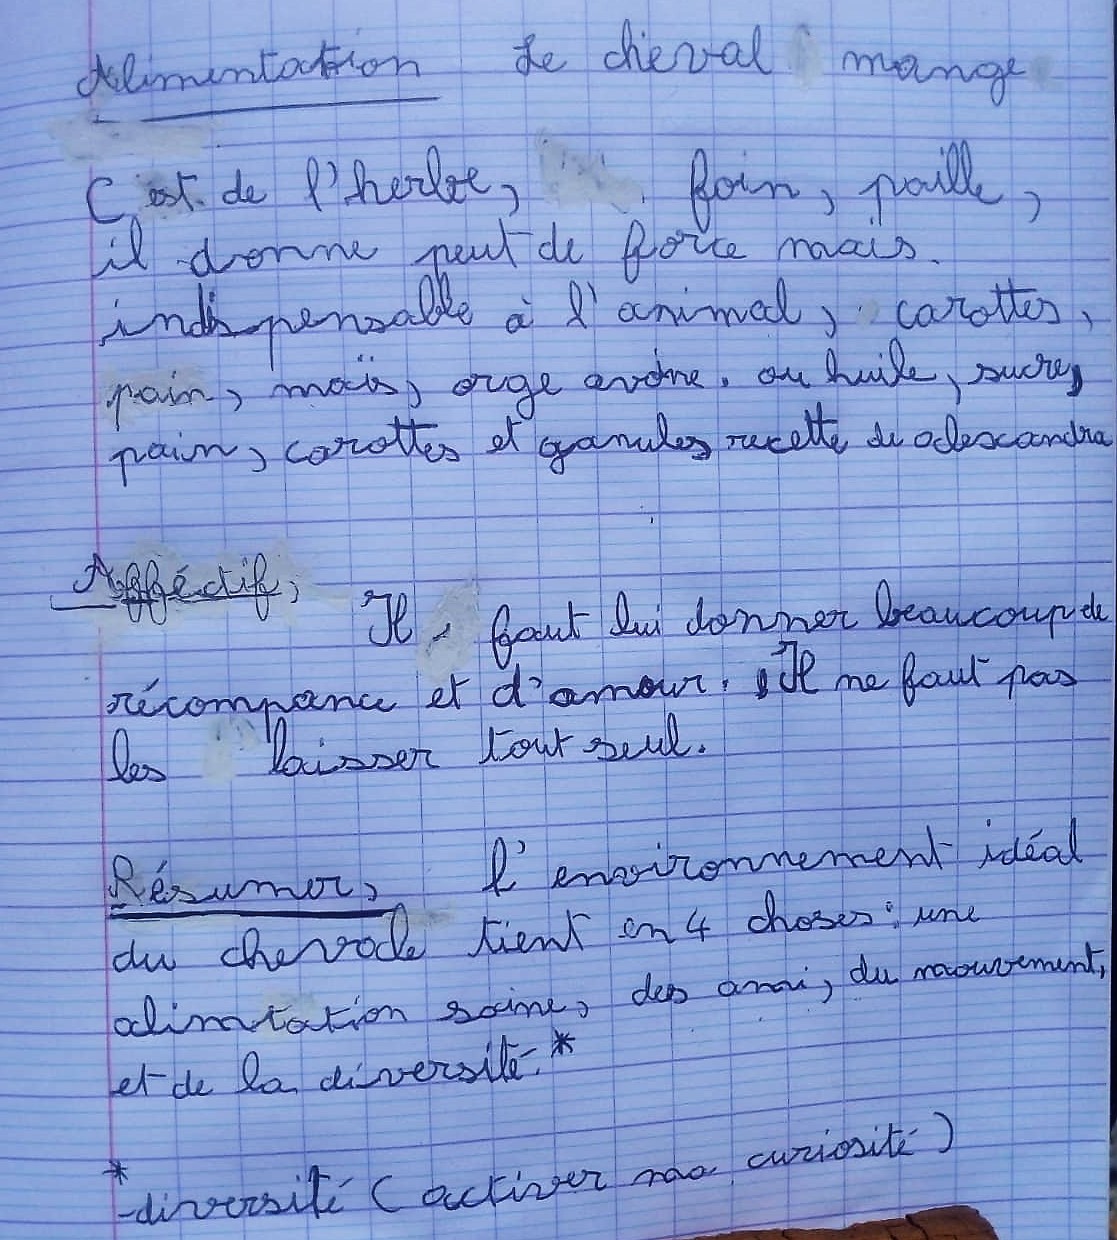 Alimentation Le cheval mange
C'est de l'herbe, foin, paille,
il donne peut de force mais.
indispensable à l'animal, carottes,
pain, maïs, orge avoine. ou huile, sucre,
pain, carottes et granules recette de alescandra
Afféctif, Il faut lui donner beaucoup de
récompance et d'amour. Il ne faut pas
les laisser tout seul.
Résumer, l'environnement idéal
du chevale tient en 4 choses: une
alimtation saine, des ami, du mouvement,
et de la diversité.*
*
-diversité (activer sa curiosité)